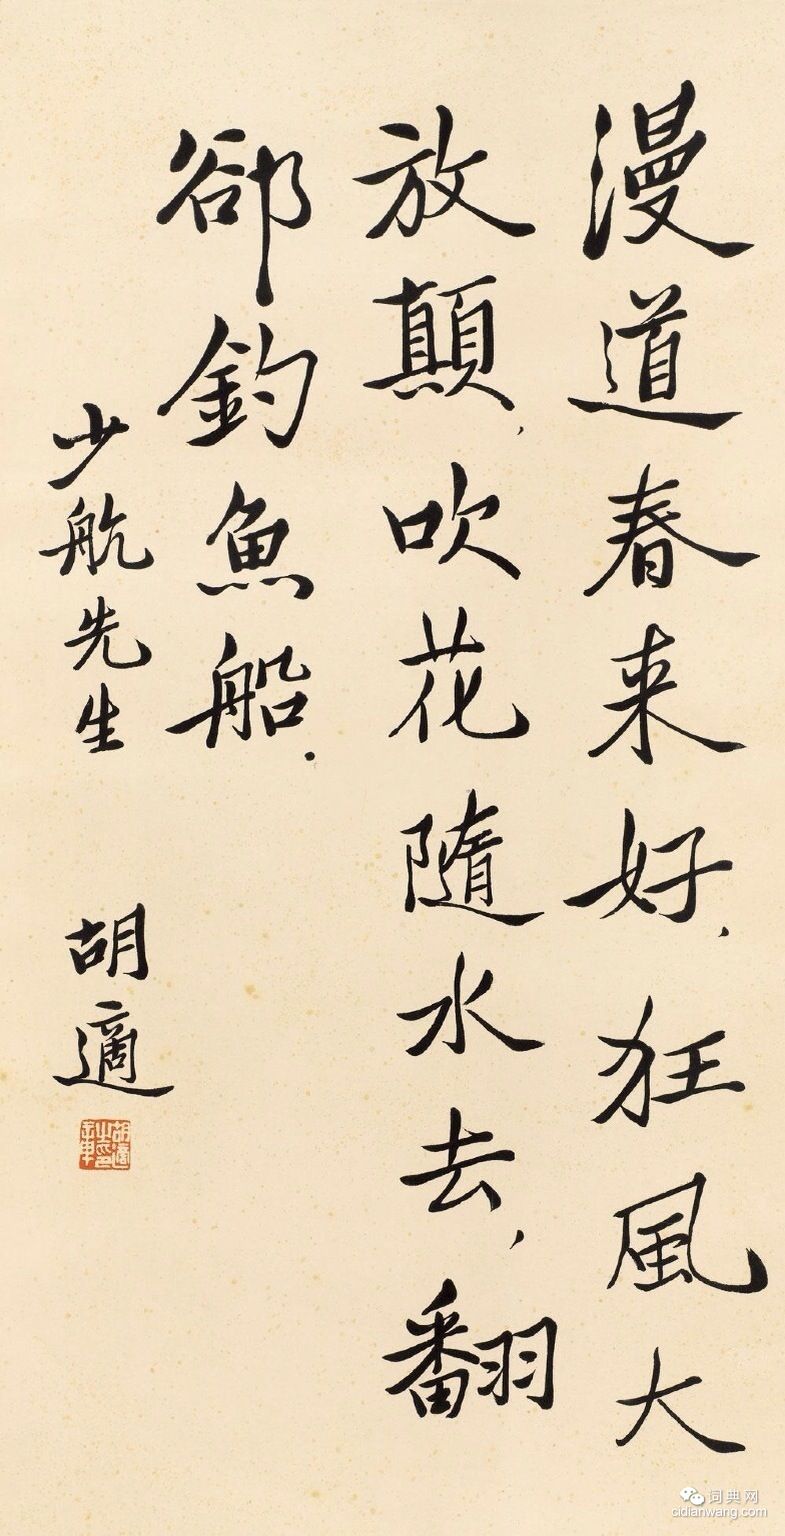 漫道春来好，狂風大
放顛，吹花隨水去，翻
郤釣魚船．
少航先生
胡適
胡適之印
词典网
cidianwang.com